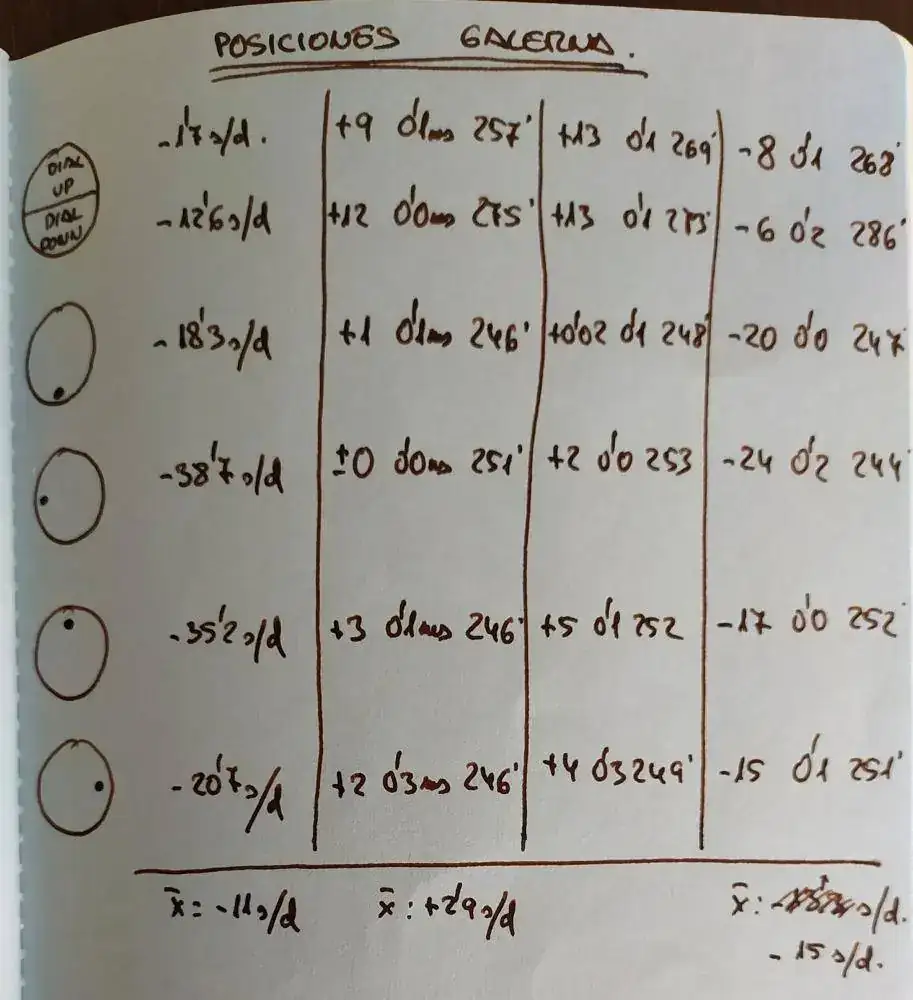 POSICIONES GALERNA.
DIAL UP -1'7 s/d. +9 0'1ms 257° +13 0'1 269° -8 0'1 268°
DIAL DOWN -12'6 s/d +12 0'0ms 275° +13 0'1 273° -6 0'2 286°
-18'3 s/d +1 0'1ms 246° +0'02 0'1 248° -20 0'0 247°
-38'7 s/d ±0 0'0ms 251° +2 0'0 253 -24 0'2 244°
-35'2 s/d +3 0'1ms 246° +5 0'1 252 -17 0'0 252°
-20'7 s/d +2 0'3ms 246° +4 0'3 249° -15 0'1 251°
x̄ = -11 s/d x̄: +2'9 s/d x̄: s/d.
-15 s/d.